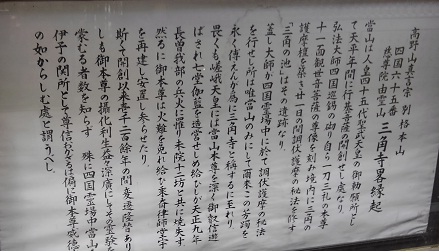 高野山真言宗 別格本山
四国六十五番
慈尊院由霊山 三角寺畧縁起
当山は人皇四十五代聖武天皇の御勅願所とし
て天平年間に行基菩薩の開創せし処なり
弘法大師四国巡錫の砌り自ら一刀三礼の本尊
十一面観世音菩薩の尊像を刻み境内に三角の
護摩壇を築き廿一日の間調伏護摩の秘法を修す
「三角の池」はその遺跡なり
蓋し大師が四国霊場中に於て調伏護摩の秘法
を行ぜし所は唯當山のみにして爾来この芳躅を
永く傳えんが為に三角寺と稱するに至れり
畏くも嵯峨天皇には當山本尊を深く御信遊
ばされ七堂伽藍を造営せしめ給ひしが天正九年
長曽我部の兵火に罹り末院十二坊と共に焼失す
然るに御本尊は火難を免れ給ひ
を再建し安置し奉らせたり
斯くて開創以来壱千二百余年の間
しも御本尊の攝化利生益々深廣にしてその霊験
蒙むる者数を知らず 殊に四国霊場中當山
伊予の関所として尊信
の如からしむ處と謂うべし